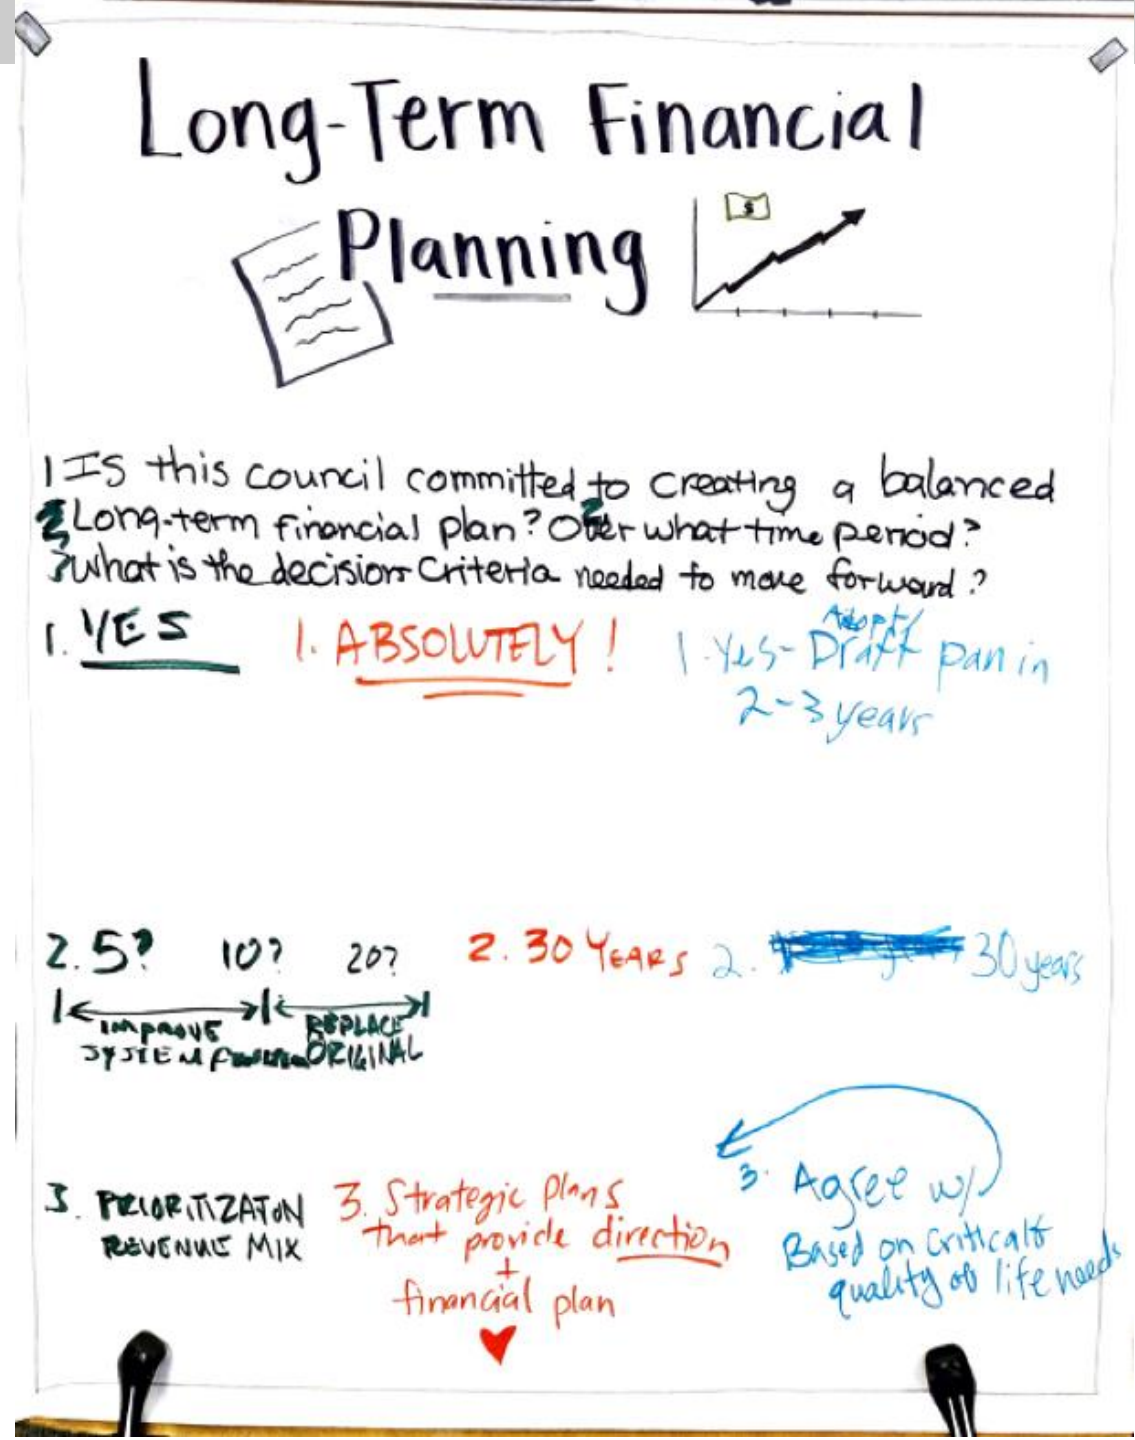 Long-Term Financial
Planning
$
1 Is this council committed to creating a balanced
2 Long-term financial plan? 2 Over what time period?
3 What is the decision criteria needed to move forward?
1. YES
1. ABSOLUTELY!
Adopt/
1. Yes- Draft pan in
2-3 years
2. 5? 10? 20?
IMPROVE
SYSTEM
REPLACE
ORIGINAL
2. 30 YEARS
2. 30 years
3. PRIORITIZATON
REVENUE MIX
3. Strategic plans
that provide direction
+
financial plan
3. Agree w/
Based on critical &
quality of life needs